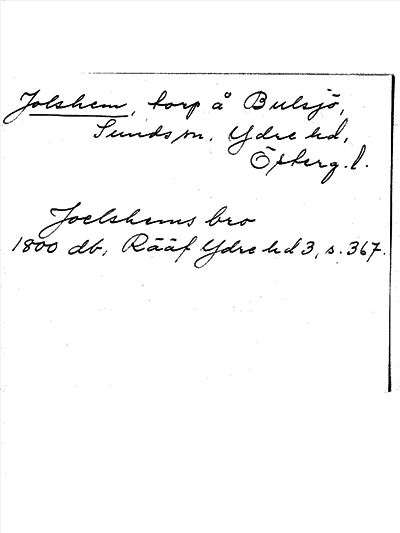 Jolshem, torp å Bulsjö,
Sunds sn. Ydre hd,
Österg. l.
Joelshems bro
1800 db, Rääf Ydre hd 3, s. 367.